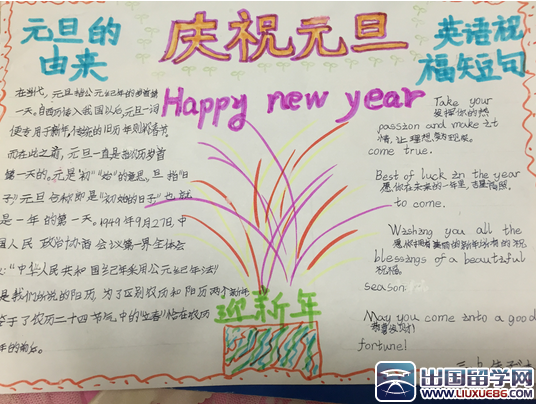 元旦的
由来
庆祝元旦
英语祝
福短句
Happy new year
在当代，元旦指公元纪年的岁首第
一天。自西历传入我国以后，元旦一词
便专用于新年，传统的旧历年则称春节
而在此之前，元旦一直是农历岁首
第一天的。元是"初""始"的意思，旦指"日
子"元旦合称即是"初始的日子"也就
是一年的第一天。1949年9月27日，中
国人民政治协商会议第一界全体会
"中华人民共和国纪年采用公元纪年法"
是我们所说的阳历，为了区别农历和阳历两个新年
鉴于了农历二十四节气中的"立春"恰在农历
年的前后。
迎新年
Take your
passion and make it
come true.
Best of luck in the year
to come.
Wishing you all the
blessings of a beautiful
祝福。
season
May you come into a good
恭喜发财！
fortune!
出国留学网
WWW.LIUXUE86.COM